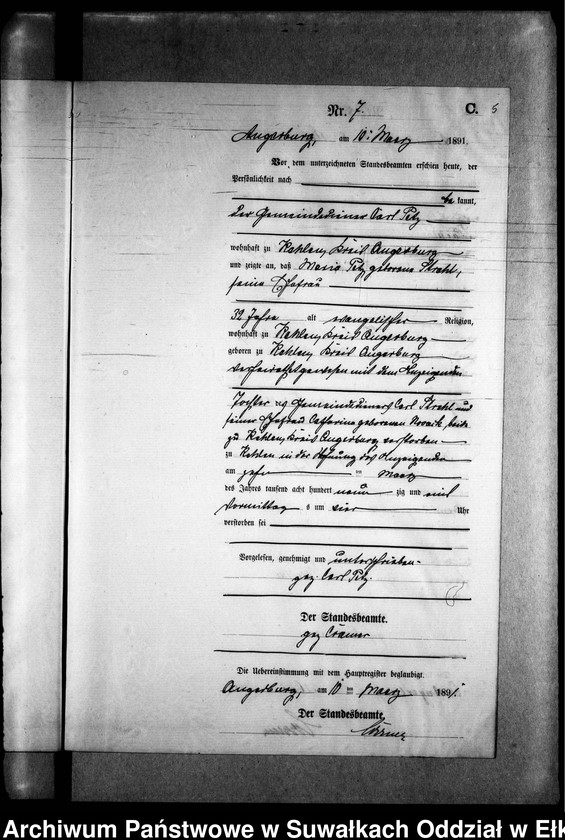 Nr. 7. C. 5
Angerburg, am 10ten Maerz 1891
Vor dem unterzeichneten Standesbeamten erschien heute, der
Persönlichkeit nach
be kannt,
der Gemeindediener Carl Petz
wohnhaft zu Kehlen, Kreis Angerburg
und zeigte an, daß Maria Petz, geborene Strehl,
seine Ehefrau
32 Jahre alt evangelischer Religion,
wohnhaft zu Kehlen, Kreis Angerburg
geboren zu Kehlen, Kreis Angerburg
verheirathet gewesen mit dem Anzeigenden
Tochter des Gemeindedieners Carl Strehl und
seiner Ehefrau Catharina geborenen beide
zu Kehlen, Kreis Angerburg verstorben
zu Kehlen in der Wohnung des Anzeigenden
am zehn ten Maerz
des Jahres tausend acht hundert neun zig und eins
Vormittag s um vier Uhr
verstorben sei
Vorgelesen, genehmigt und unterschrieben
gez. Carl Petz.
Der Standesbeamte.
gez Cramer
Die Uebereinstimmung mit dem Hauptregister beglaubigt.
Angerburg, am 10 ten Maerz 1891.
Der Standesbeamte
Cramer
Archiwum Państwowe w Suwałkach Oddział w Ełk